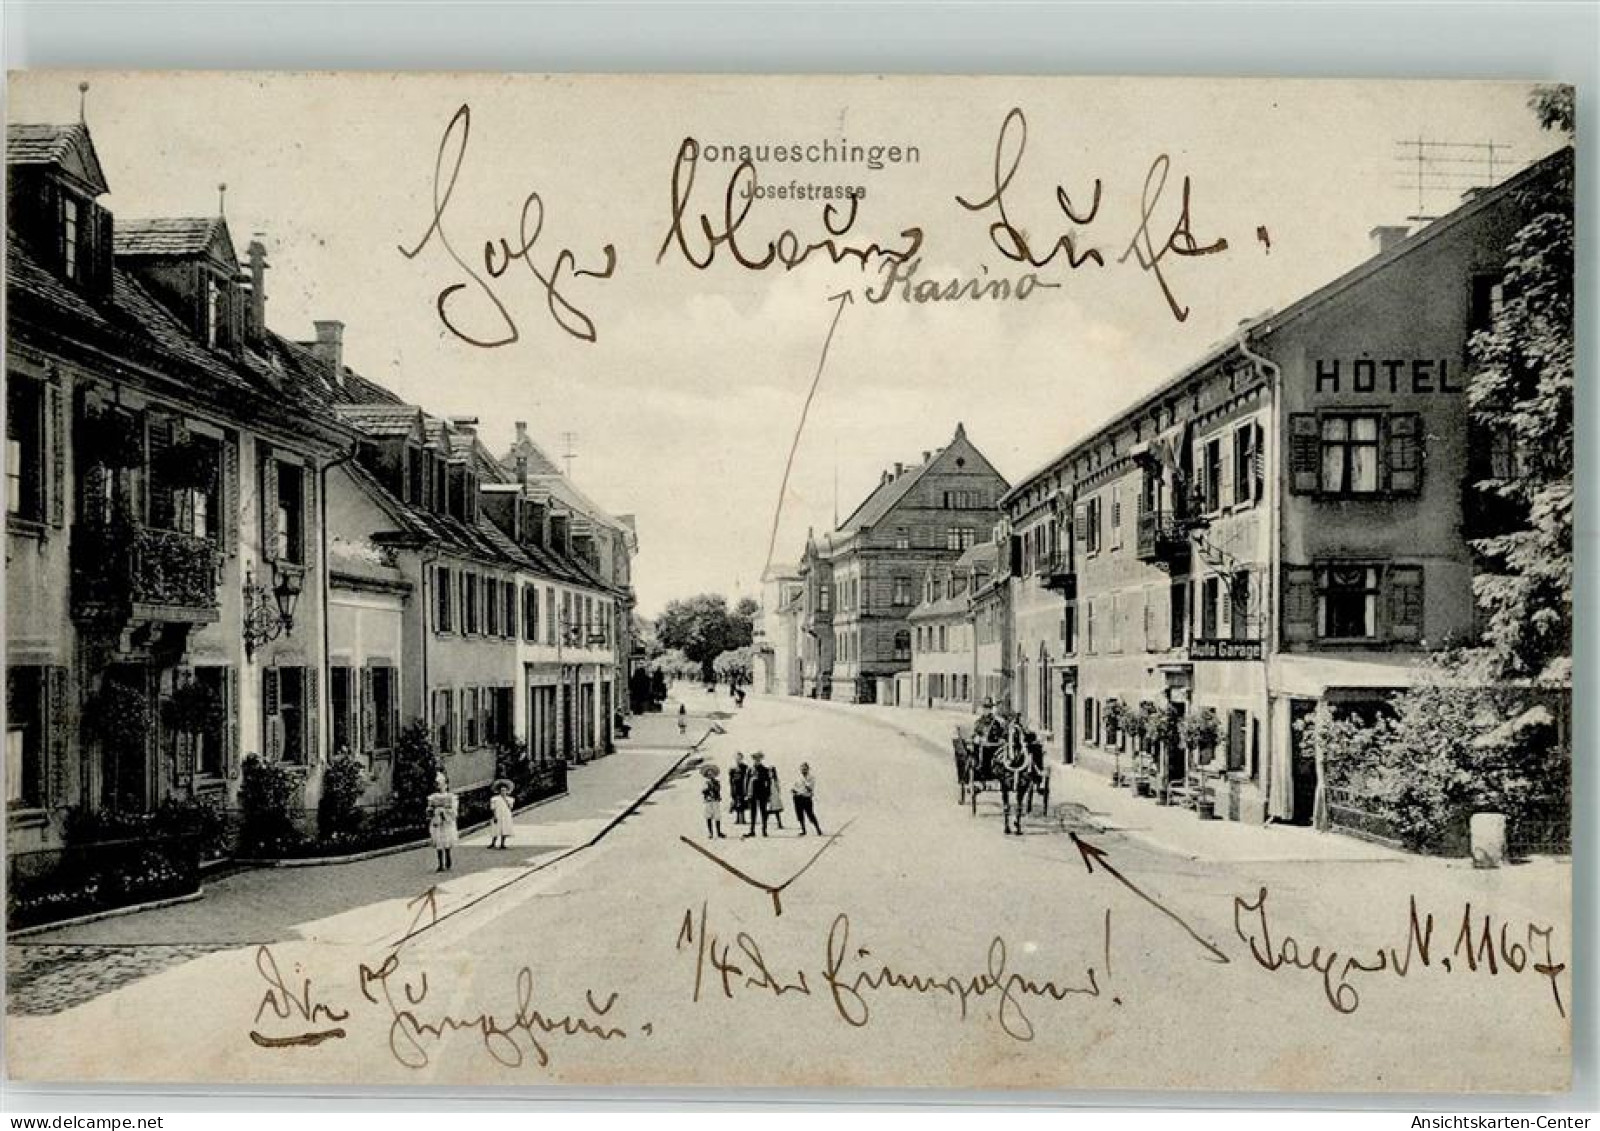 Donaueschingen
Josefstrasse
blau Luft.
Kasino
HOTEL
Auto Garage
Die Jungfrau.
1/4 der Einwohner!
Taxe N. 1167
Ansichtskarten-Center